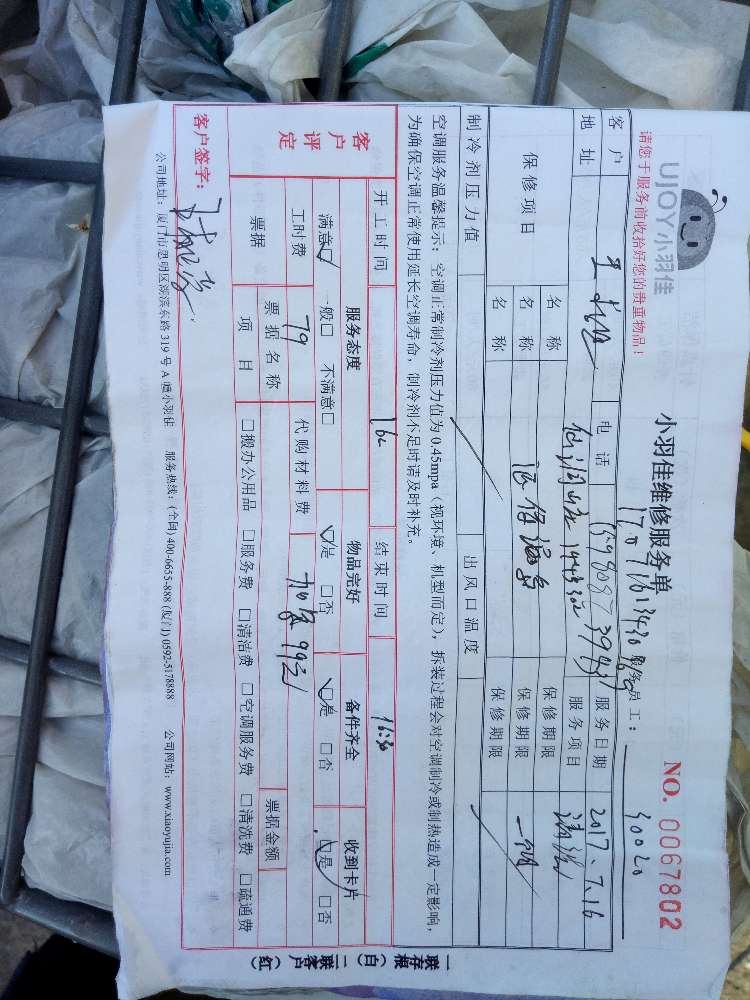 UJOY小羽佳
小羽佳维修服务单
NO. 0067802
请您于服务前收拾好您的贵重物品!
服务员工: 30020
客户 电话 服务日期 2017.7.16
地址 服务项目 清洗
保修项目 名称 保修期限
名称 保修期限
名称 保修期限
制冷剂压力值 出风口温度
空调服务温馨提示:空调正常制冷剂压力值为0.45mpa(视环境、机型而定),拆装过程会对空调制冷或制热造成一定影响,
为确保空调正常使用延长空调寿命,制冷剂不足时请及时补充。
开工时间 结束时间 16:30
客户评定
服务态度 物品完好 备件齐全 收到卡片
满意☑ 一般□ 不满意□ ☑是 □否 ☑是 □否 ☑是 □否
工时费 79 代购材料费 加氟99元
票据 票据名称 票据金额
项目 □搬办公用品 □服务费 □清洁费 □空调服务费 □清洗费 □疏通费
客户签字:
公司地址:厦门市思明区湖滨东路319号A1幢小羽佳 服务热线:(全国)400-6655-888(厦门)0592-5178888 公司网站:www.xiaoyujia.com
一联存根(白)二联客户(红)